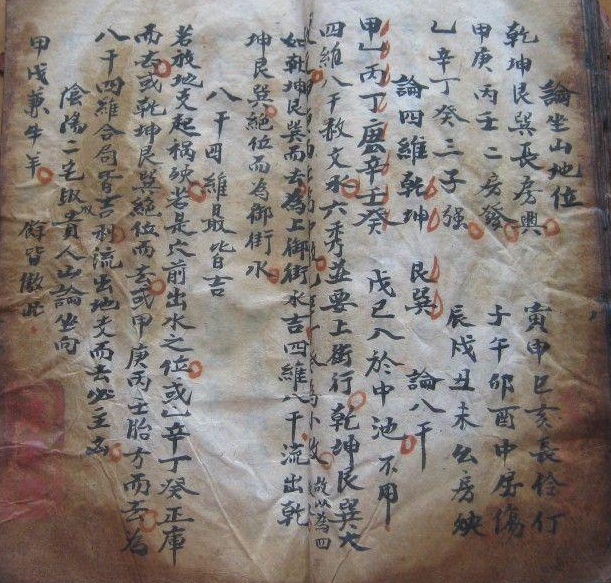 論坐山地位
乾坤艮巽長房興 寅申巳亥長伶仃
甲庚丙壬二房發 子午卯酉中房傷
乙辛丁癸三子強 辰戌丑未公房殃
論四維乾坤艮巽 論八干
甲乙丙丁庚辛壬癸 戊己入於中池不用
四維八干教文水六秀並要上街行乾坤艮巽大
故以為四
如乾坤艮巽而去為上御街水吉四維八干流出乾
坤艮巽絕位而為御街水
八干四維最皆吉
若放地支起禍殃若是穴前出水之位或乙辛丁癸正庫
而去或乾坤艮巽絕位而去或甲庚丙壬胎方而去為
八干四維合局皆吉利流出地支而去必主凶
陰陽二宅取貴人山論坐向
甲戊兼牛羊 餘皆倣此